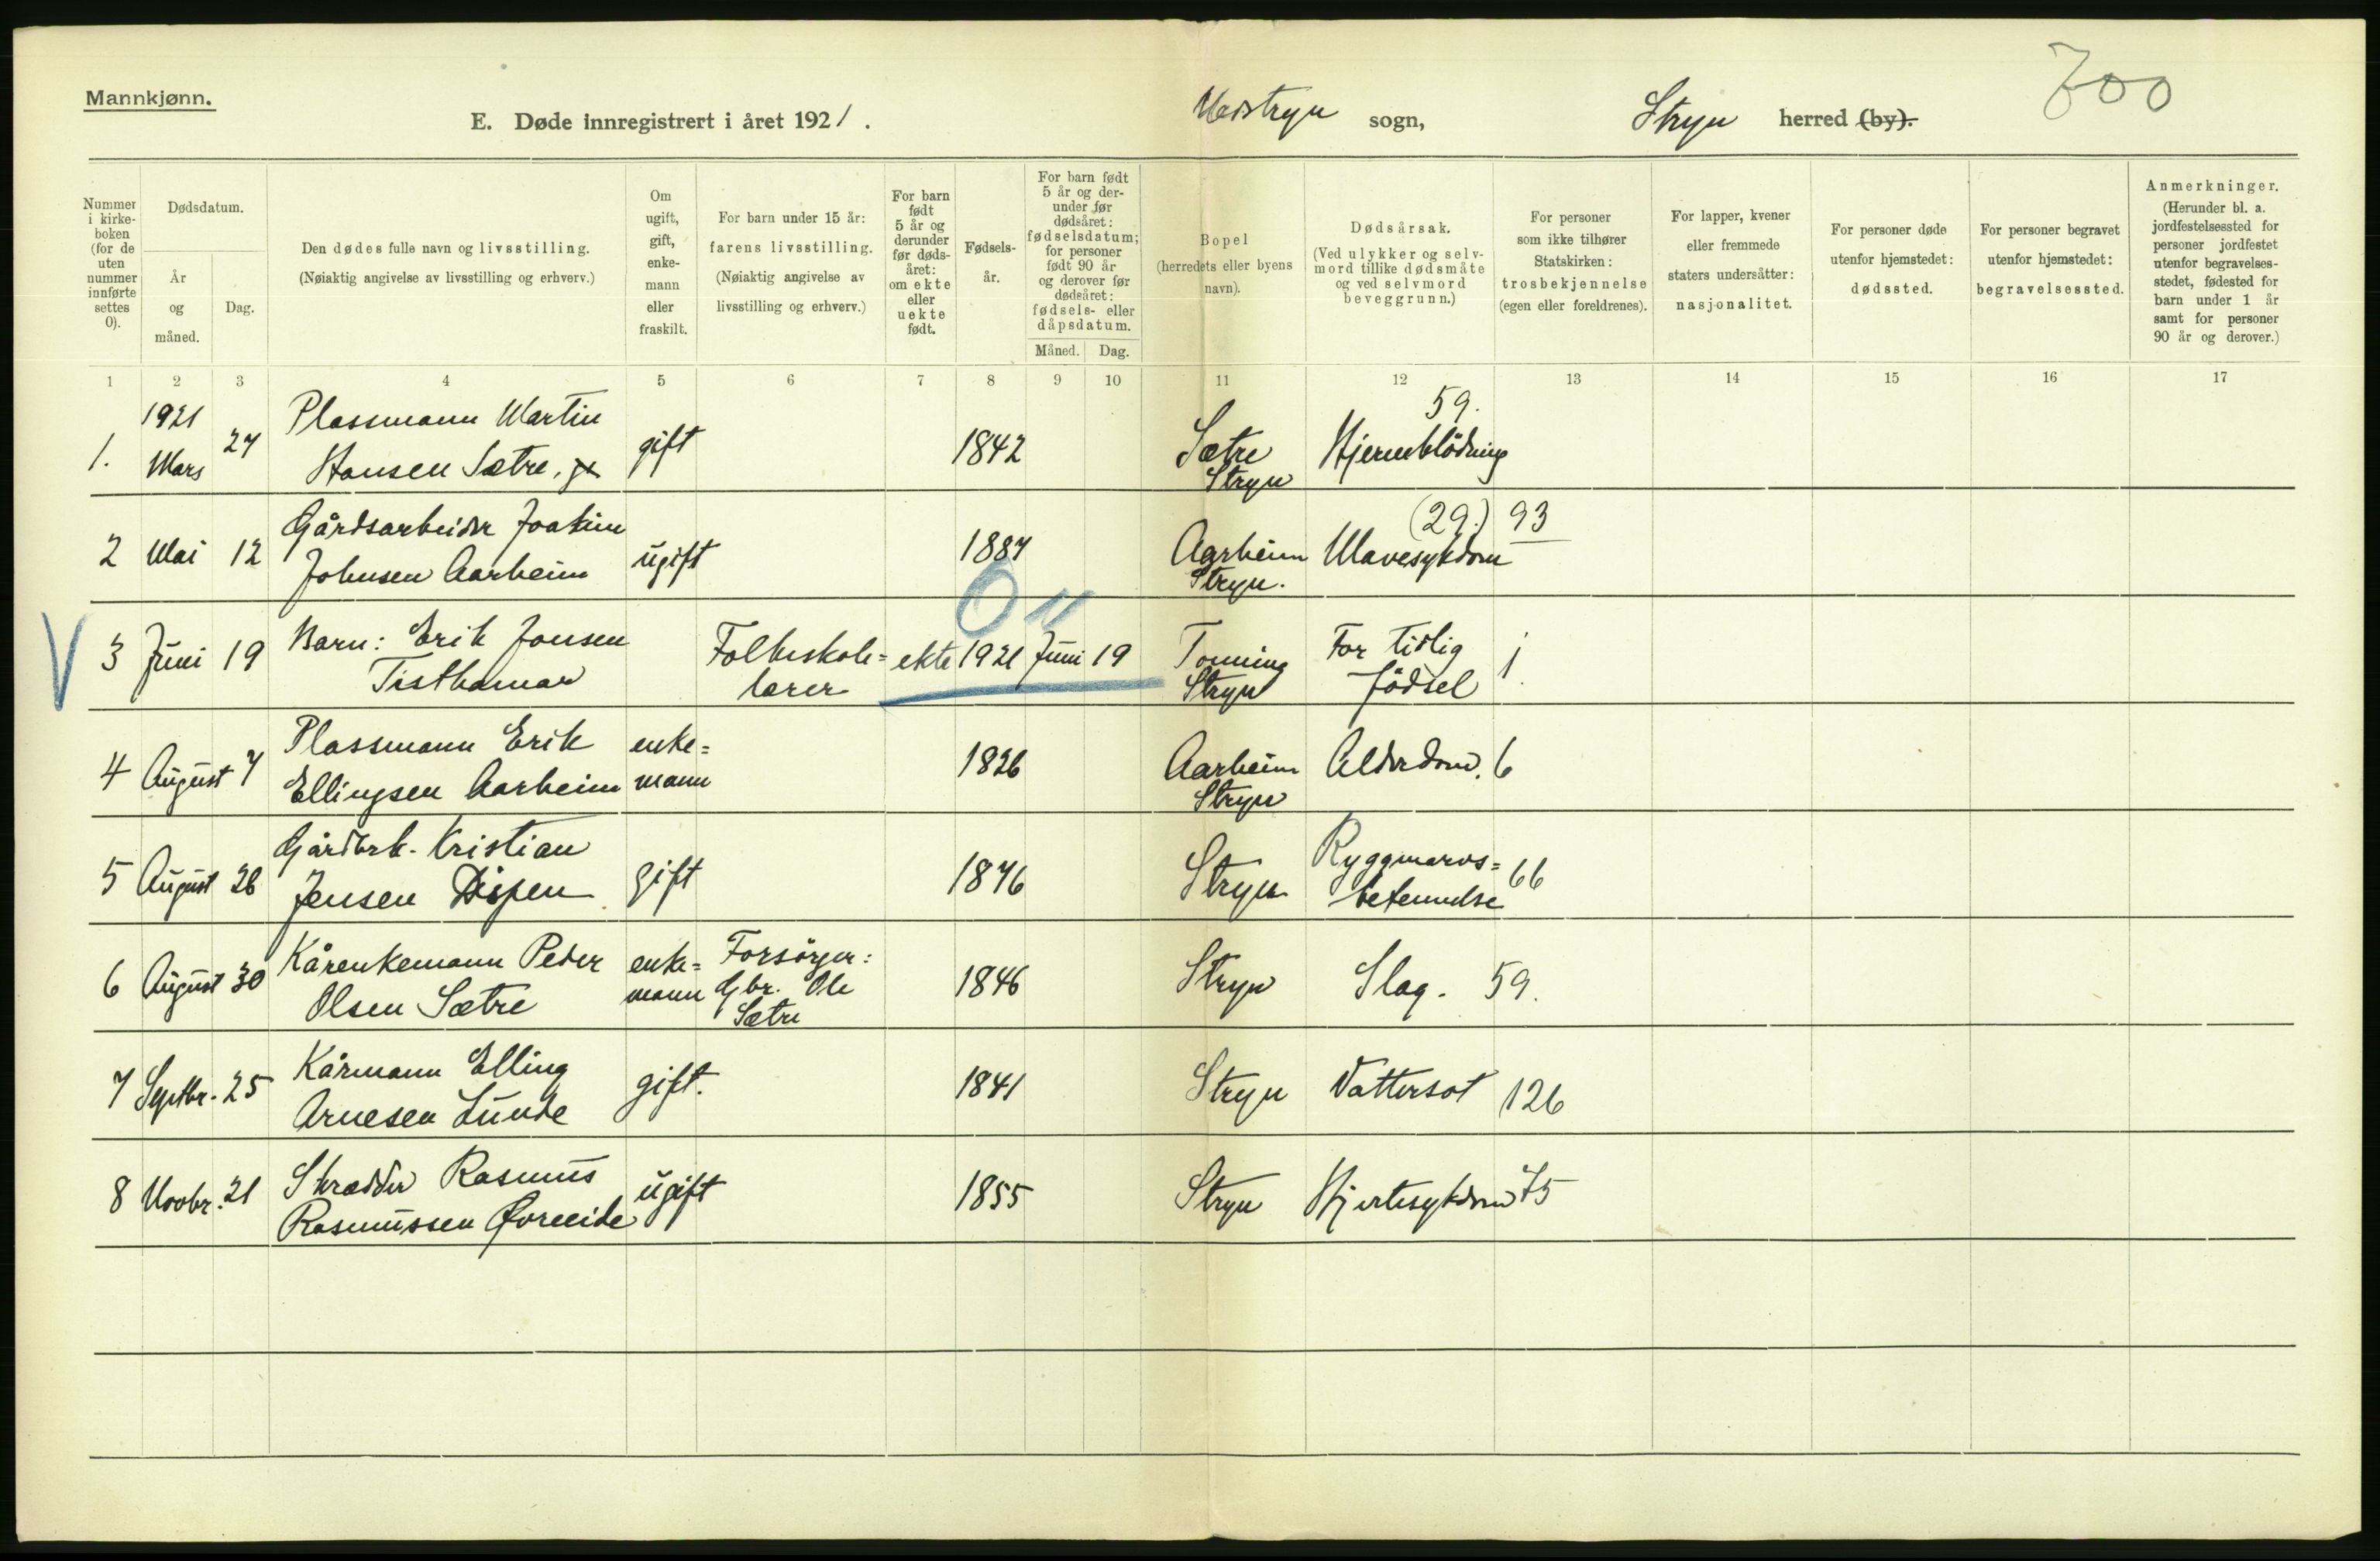 Mannkjønn.
E. Døde innregistrert i året 1921.
Nedstryn sogn,
Stryn herred (by).
700
Nummer i kirke-boken (for de uten nummer innførte settes 0).
Dødsdatum.
År og måned.
Dag.
Den dødes fulle navn og livsstilling.
(Nøiaktig angivelse av livsstilling og erhverv.)
Om ugift, gift, enke-mann eller fraskilt.
For barn under 15 år: farens livsstilling.
(Nøiaktig angivelse av livsstilling og erhverv.)
For barn født 5 år og derunder før døds-året: om ekte eller uekte født.
Fødsels-år.
For barn født 5 år og der-under før dødsåret: fødselsdatum; for personer født 90 år og derover før dødsåret: fødsels- eller dåpsdatum.
Måned.
Dag.
Bopel
(herredets eller byens navn).
Dødsårsak.
(Ved ulykker og selv-mord tillike dødsmåte og ved selvmord beveggrunn.)
For personer som ikke tilhører Statskirken: trosbekjennelse
(egen eller foreldrenes).
For lapper, kvener eller fremmede staters undersåtter: nasjonalitet.
For personer døde utenfor hjemstedet: dødssted.
For personer begravet utenfor hjemstedet: begravelsessted.
Anmerkninger.
(Herunder bl. a. jordfestelsessted for personer jordfestet utenfor begravelses-stedet, fødested for barn under 1 år samt for personer 90 år og derover.)
1 2 3 4 5 6 7 8 9 10 11 12 13 14 15 16 17
1. 1921 Mars 27 Plassmann Martin Hansen Sætre. gift 1842 Sætre Stryn Hjerneblödning 59.
2 Mai 12 Gårdsarbeider Joakim Johnsen Aarheim ugift 1887 Aarheim Stryn. Mavesykdom (29.) 93
3 Juni 19 Barn: Erik Jonsen Tisthamar Folkeskole= lærer ekte 1921 Juni 19 0 11 Tonning Stryn For tidlig födsel 1
4 August 7 Plassmann Erik Ellingsen Aarheim enke= mann 1826 Aarheim Stryn Alderdom. 6
5 August 26 Gårdbrk. Kristian Jensen Dispen gift 1876 Stryn Ryggmarvs= betennelse 66
6 August 30 Kårenkemann Peder Olsen Sætre enke= mann Forsörger: Gbr. Ole Sætre 1846 Stryn Slag. 59.
7 Septbr. 25 Kårmann Elling Arnesen Lunde gift. 1841 Stryn Vattersot 126
8 Novbr. 21 Skrædder Rasmus Rasmussen Øvreeide ugift 1855 Stryn Hjertesykdom 75